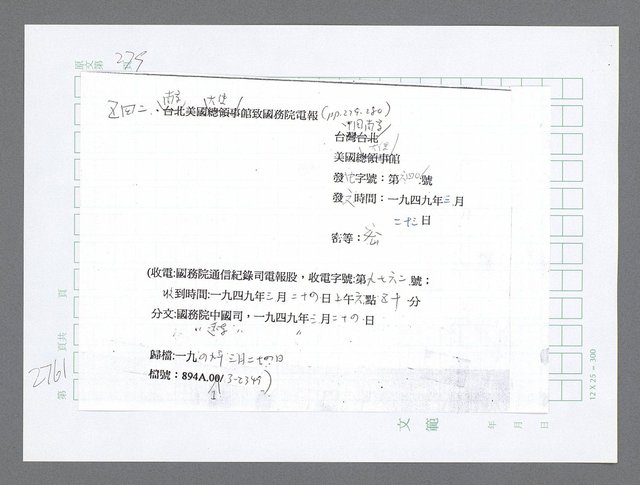 原文第 頁
279
五四二、台北美國總領事館致國務院電報(pp.279-280)
南京 大使
中国南京
台灣台北
大使
美國總領事館
發 字號：第 號
發文時間：一九四九年三月
二十三日
密等：密
(收電:國務院通信紀錄司電報股，收電字號:第九七六二號；
收到時間:一九四九年三月二十四日上午六點五十分
分文:國務院中國司，一九四九年三月二十四日
歸檔:一九四九年三月二十四日
檔號：894A.00/3-2349)
1
第 頁共 頁
2761
文範
年 月 日
12 X 25 = 300